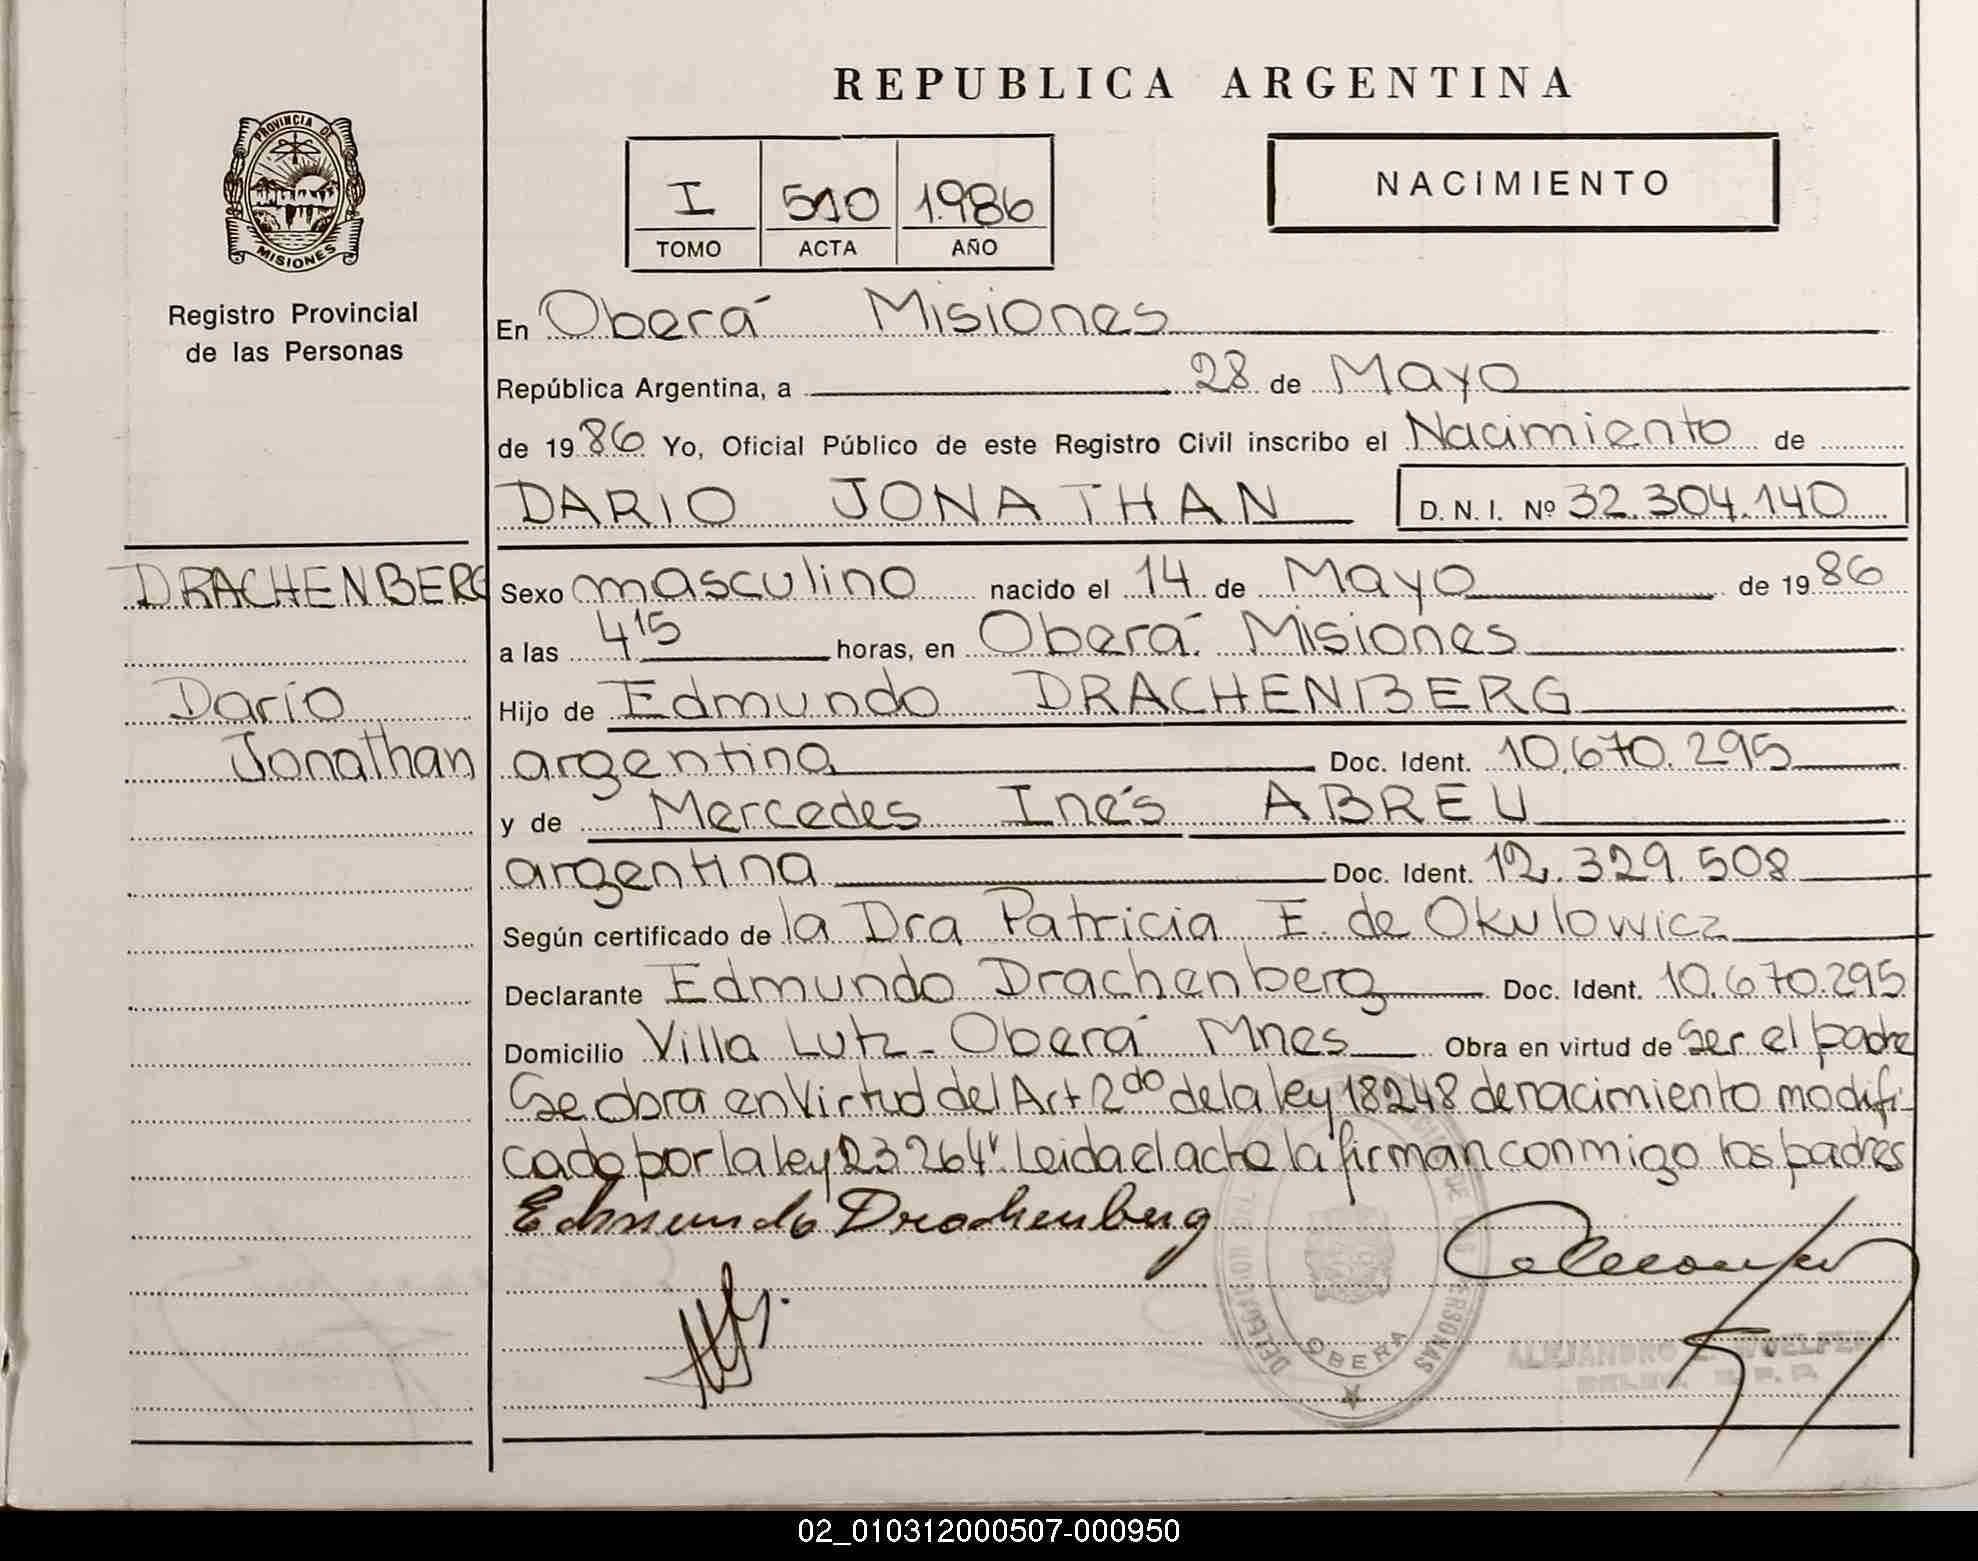 REPUBLICA ARGENTINA
PROVINCIA DE
MISIONES
Registro Provincial
de las Personas
I 510 1.986
TOMO ACTA AÑO
NACIMIENTO
En Oberá Misiones
República Argentina, a 28 de Mayo
de 19 86 Yo, Oficial Público de este Registro Civil inscribo el Nacimiento de
DARIO JONATHAN D. N. I. Nº 32.304.140
DRACHENBERG
Dario
Jonathan
Sexo masculino nacido el 14 de Mayo de 19 86
a las 4 15 horas, en Oberá Misiones
Hijo de Edmundo DRACHENBERG
argentino Doc. Ident. 10.670.295
y de Mercedes Inés ABREU
argentina Doc. Ident. 12.329.508
Según certificado de la Dra Patricia E. de Okulowicz
Declarante Edmundo Drachenberg Doc. Ident. 10.670.295
Domicilio Villa Lutz - Oberá Mnes Obra en virtud de Ser el padre
Se obra en Virtud del Art 2do de la ley 18248 de nacimiento modifi-
cado por la ley 23264". Leida el acta la firman conmigo los padres
Edmundo Drachenberg
OBERA
ALEJANDRO
02_010312000507-000950